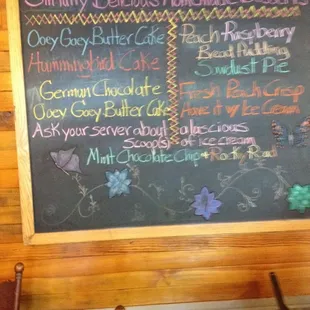 Sinfully Delicious Homemade Desserts
Ooey Gooey Butter Cake
Hummingbird Cake
German Chocolate
Ooey Gooey Butter Cake
Peach Raspberry
Bread Pudding
Sawdust Pie
Fresh Peach Crisp
Have it w/ Ice Cream
Ask your server about a luscious
Scoop(s) of Ice Cream
Mint Chocolate Chip + Rocky Road